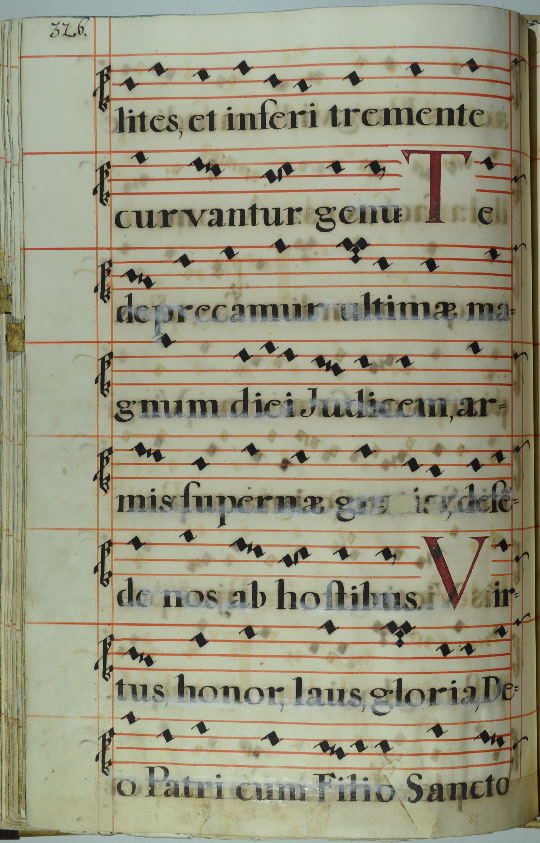 326.
lites, et inferi tremente
curvantur genu. Te
deprecamur ultimæ ma-
gnum diei Judicem, ar-
mis supernæ gratiæ, defe-
de nos ab hostibus. Vir-
tus, honor, laus, gloria, De-
o Patri cum Filio Sancto